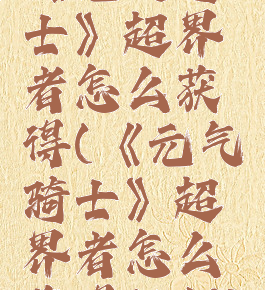 士》超界
者怎么获
得(《元气
骑士》超
界者怎么